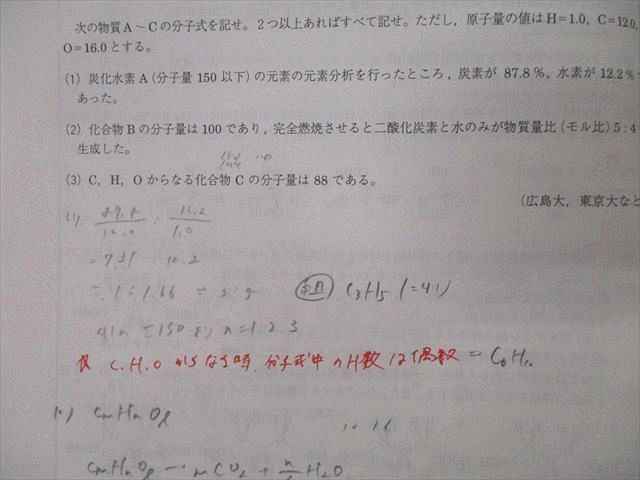 次の物質A～Cの分子式を記せ。2つ以上あればすべて記せ。ただし，原子量の値はH=1.0，C=12.0,
O=16.0とする。
(1) 炭化水素A(分子量150以下)の元素の元素分析を行ったところ，炭素が 87.8％，水素が12.2％
あった。
(2) 化合物Bの分子量は100であり，完全燃焼させると二酸化炭素と水のみが物質量比(モル比) 5：4
生成した。
(3) C，H，Oからなる化合物Cの分子量は88である。
(広島大，東京大など
(1). 87.8/12.0 : 12.2/1.0
= 7.31 : 12.2
≒ 1 : 1.66 ≒ 3:5 C3H5 (=41)
41n ≦ 150 より n=1.2.3
C.H.O からなる時、分子式中のH数は偶数 = C6H10
(2) CmHnOl
CmHnOl → mCO2 + H2O